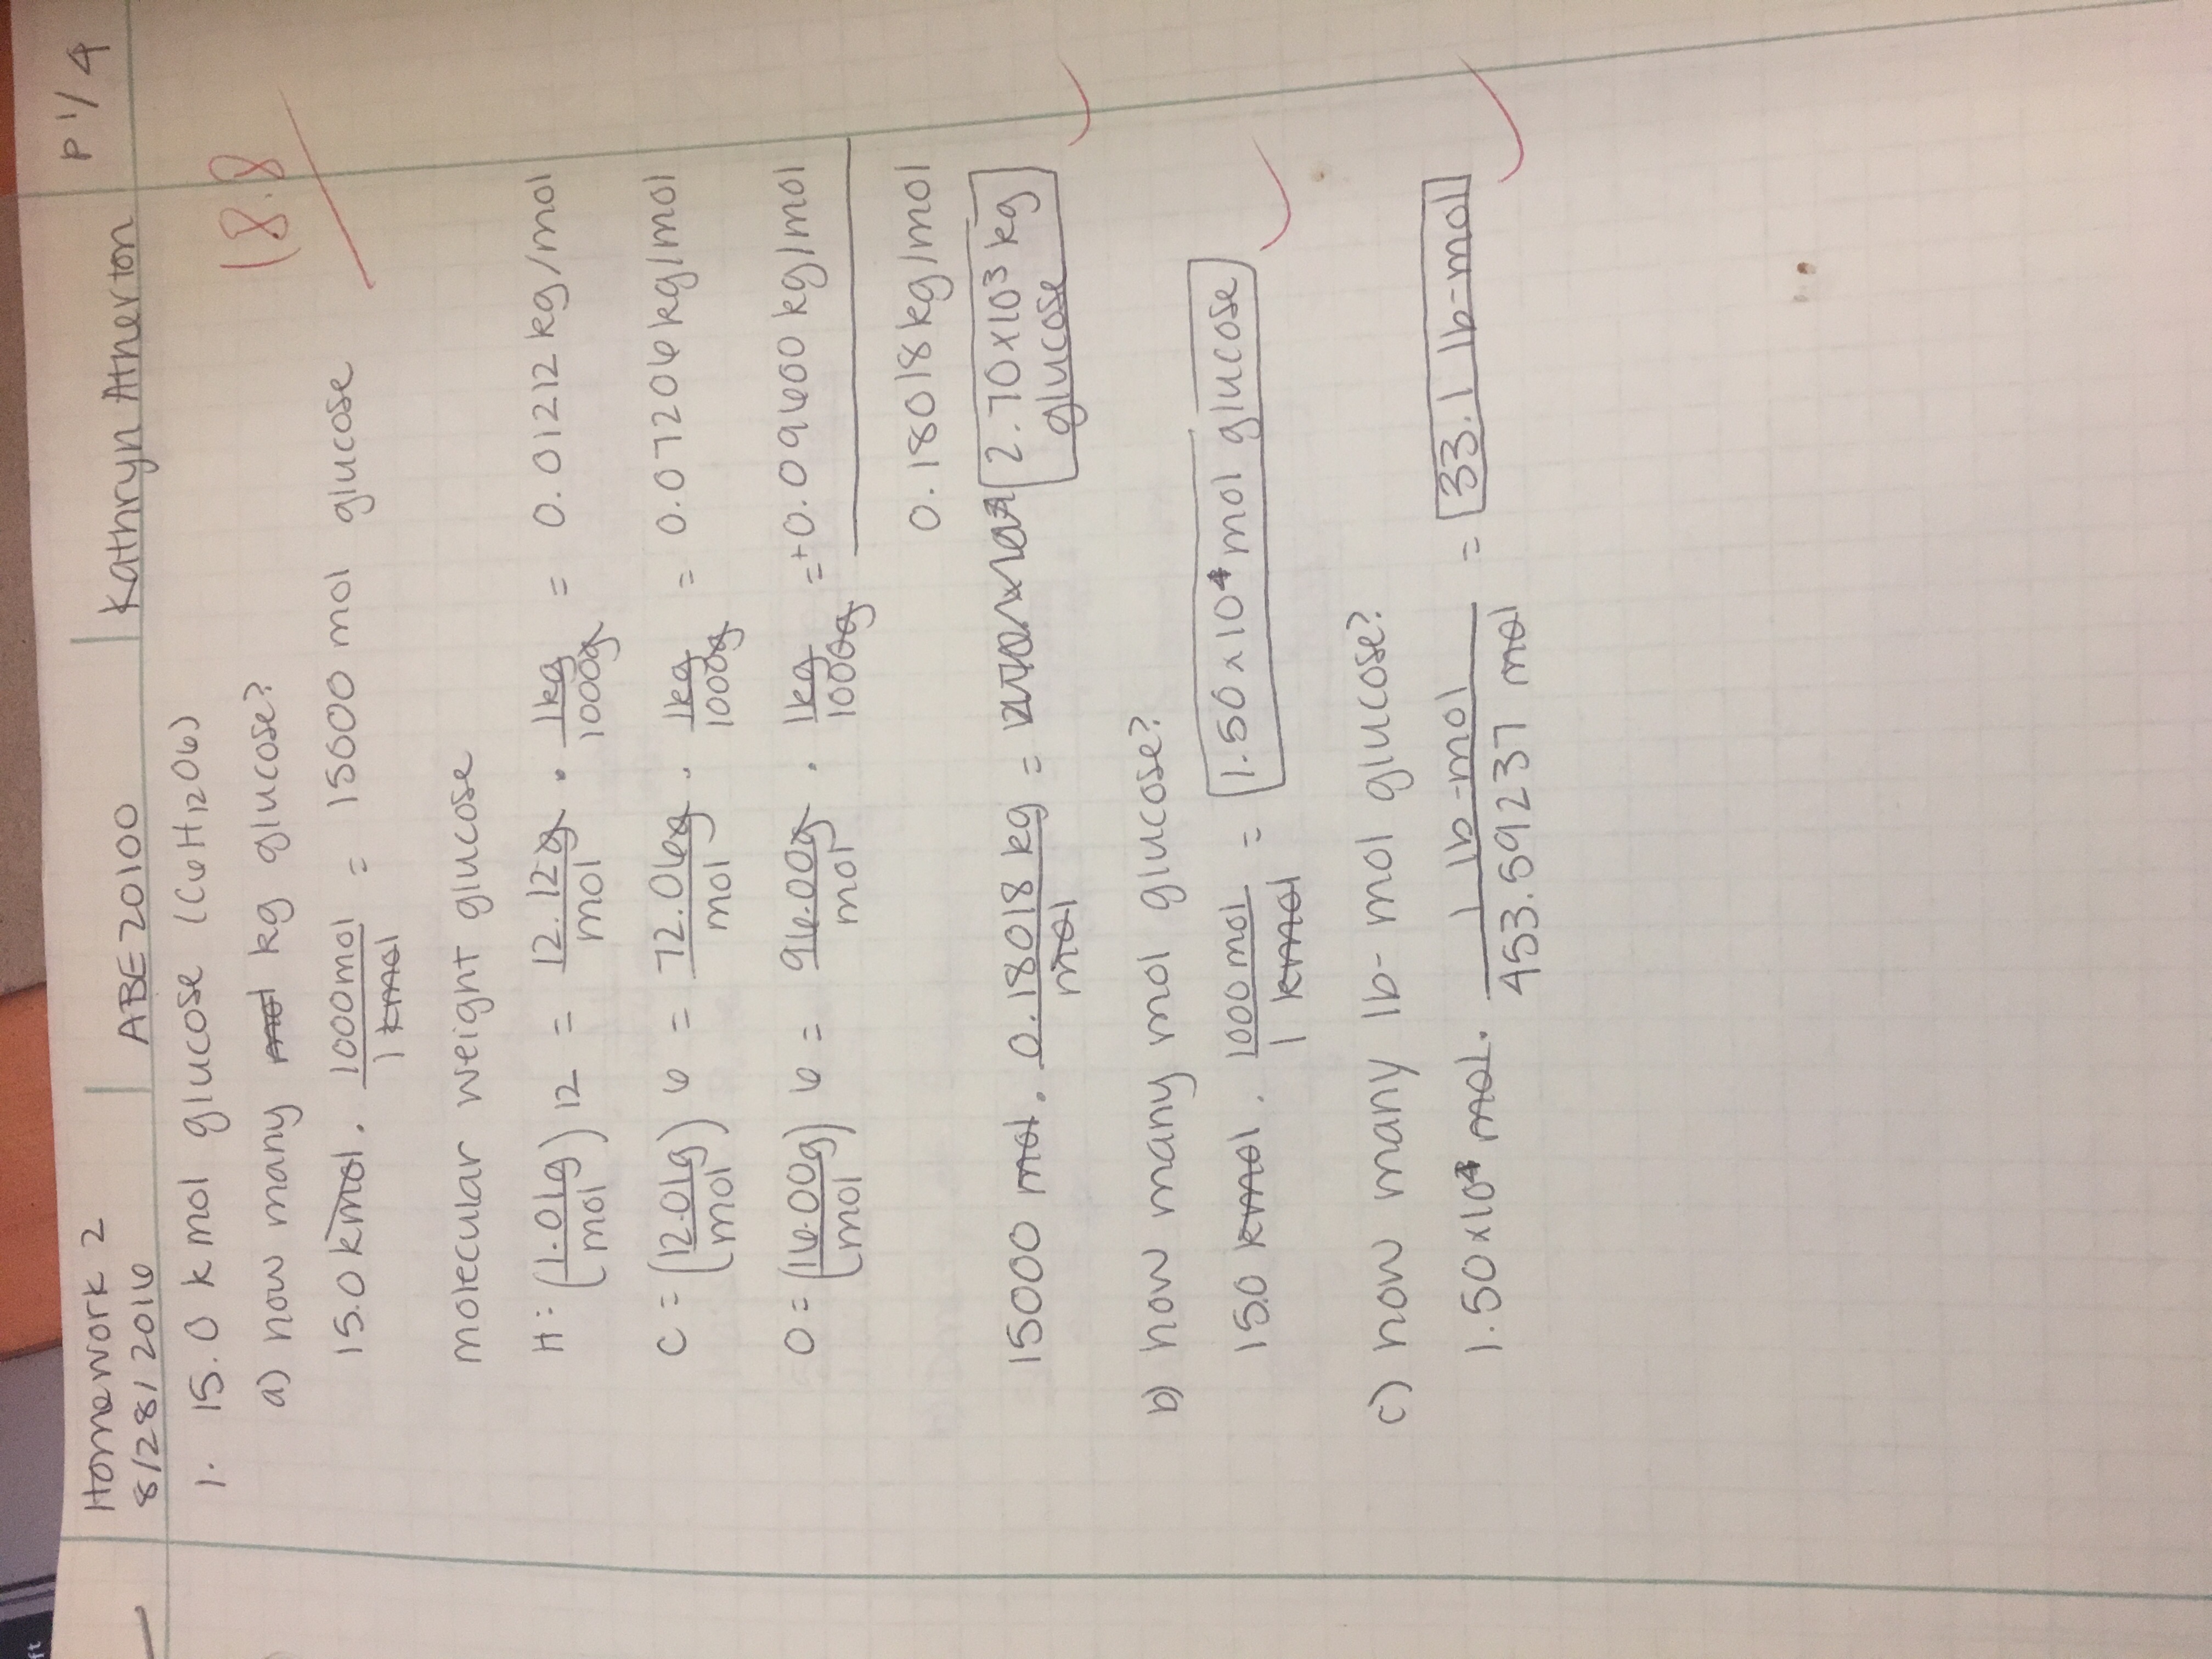 ft
Homework 2
8/28/2016
ABE 20100
Kathryn Atherton
P 1/4
1. 15.0 kmol glucose (C6H12O6)
18.8
a) how many mol kg glucose?
15.0 kmol · 1000 mol / 1 kmol = 15000 mol glucose
molecular weight glucose
H: (1.01g / mol) 12 = 12.12 g / mol · 1kg / 1000g = 0.01212 kg/mol
C = (12.01g / mol) 6 = 72.06g / mol · 1kg / 1000g = 0.07206 kg/mol
O = (16.00g / mol) 6 = 96.00g / mol · 1kg / 1000g = +0.09600 kg/mol
0.18018 kg/mol
15000 mol · 0.18018 kg / mol = 2.70 x 10³ kg
glucose
b) how many mol glucose?
15.0 kmol · 1000 mol / 1 kmol = 1.50 x 10⁴ mol glucose
c) how many lb-mol glucose?
1.50 x 10⁴ mol · 1 lb-mol / 453.59237 mol = 33.1 lb-mol